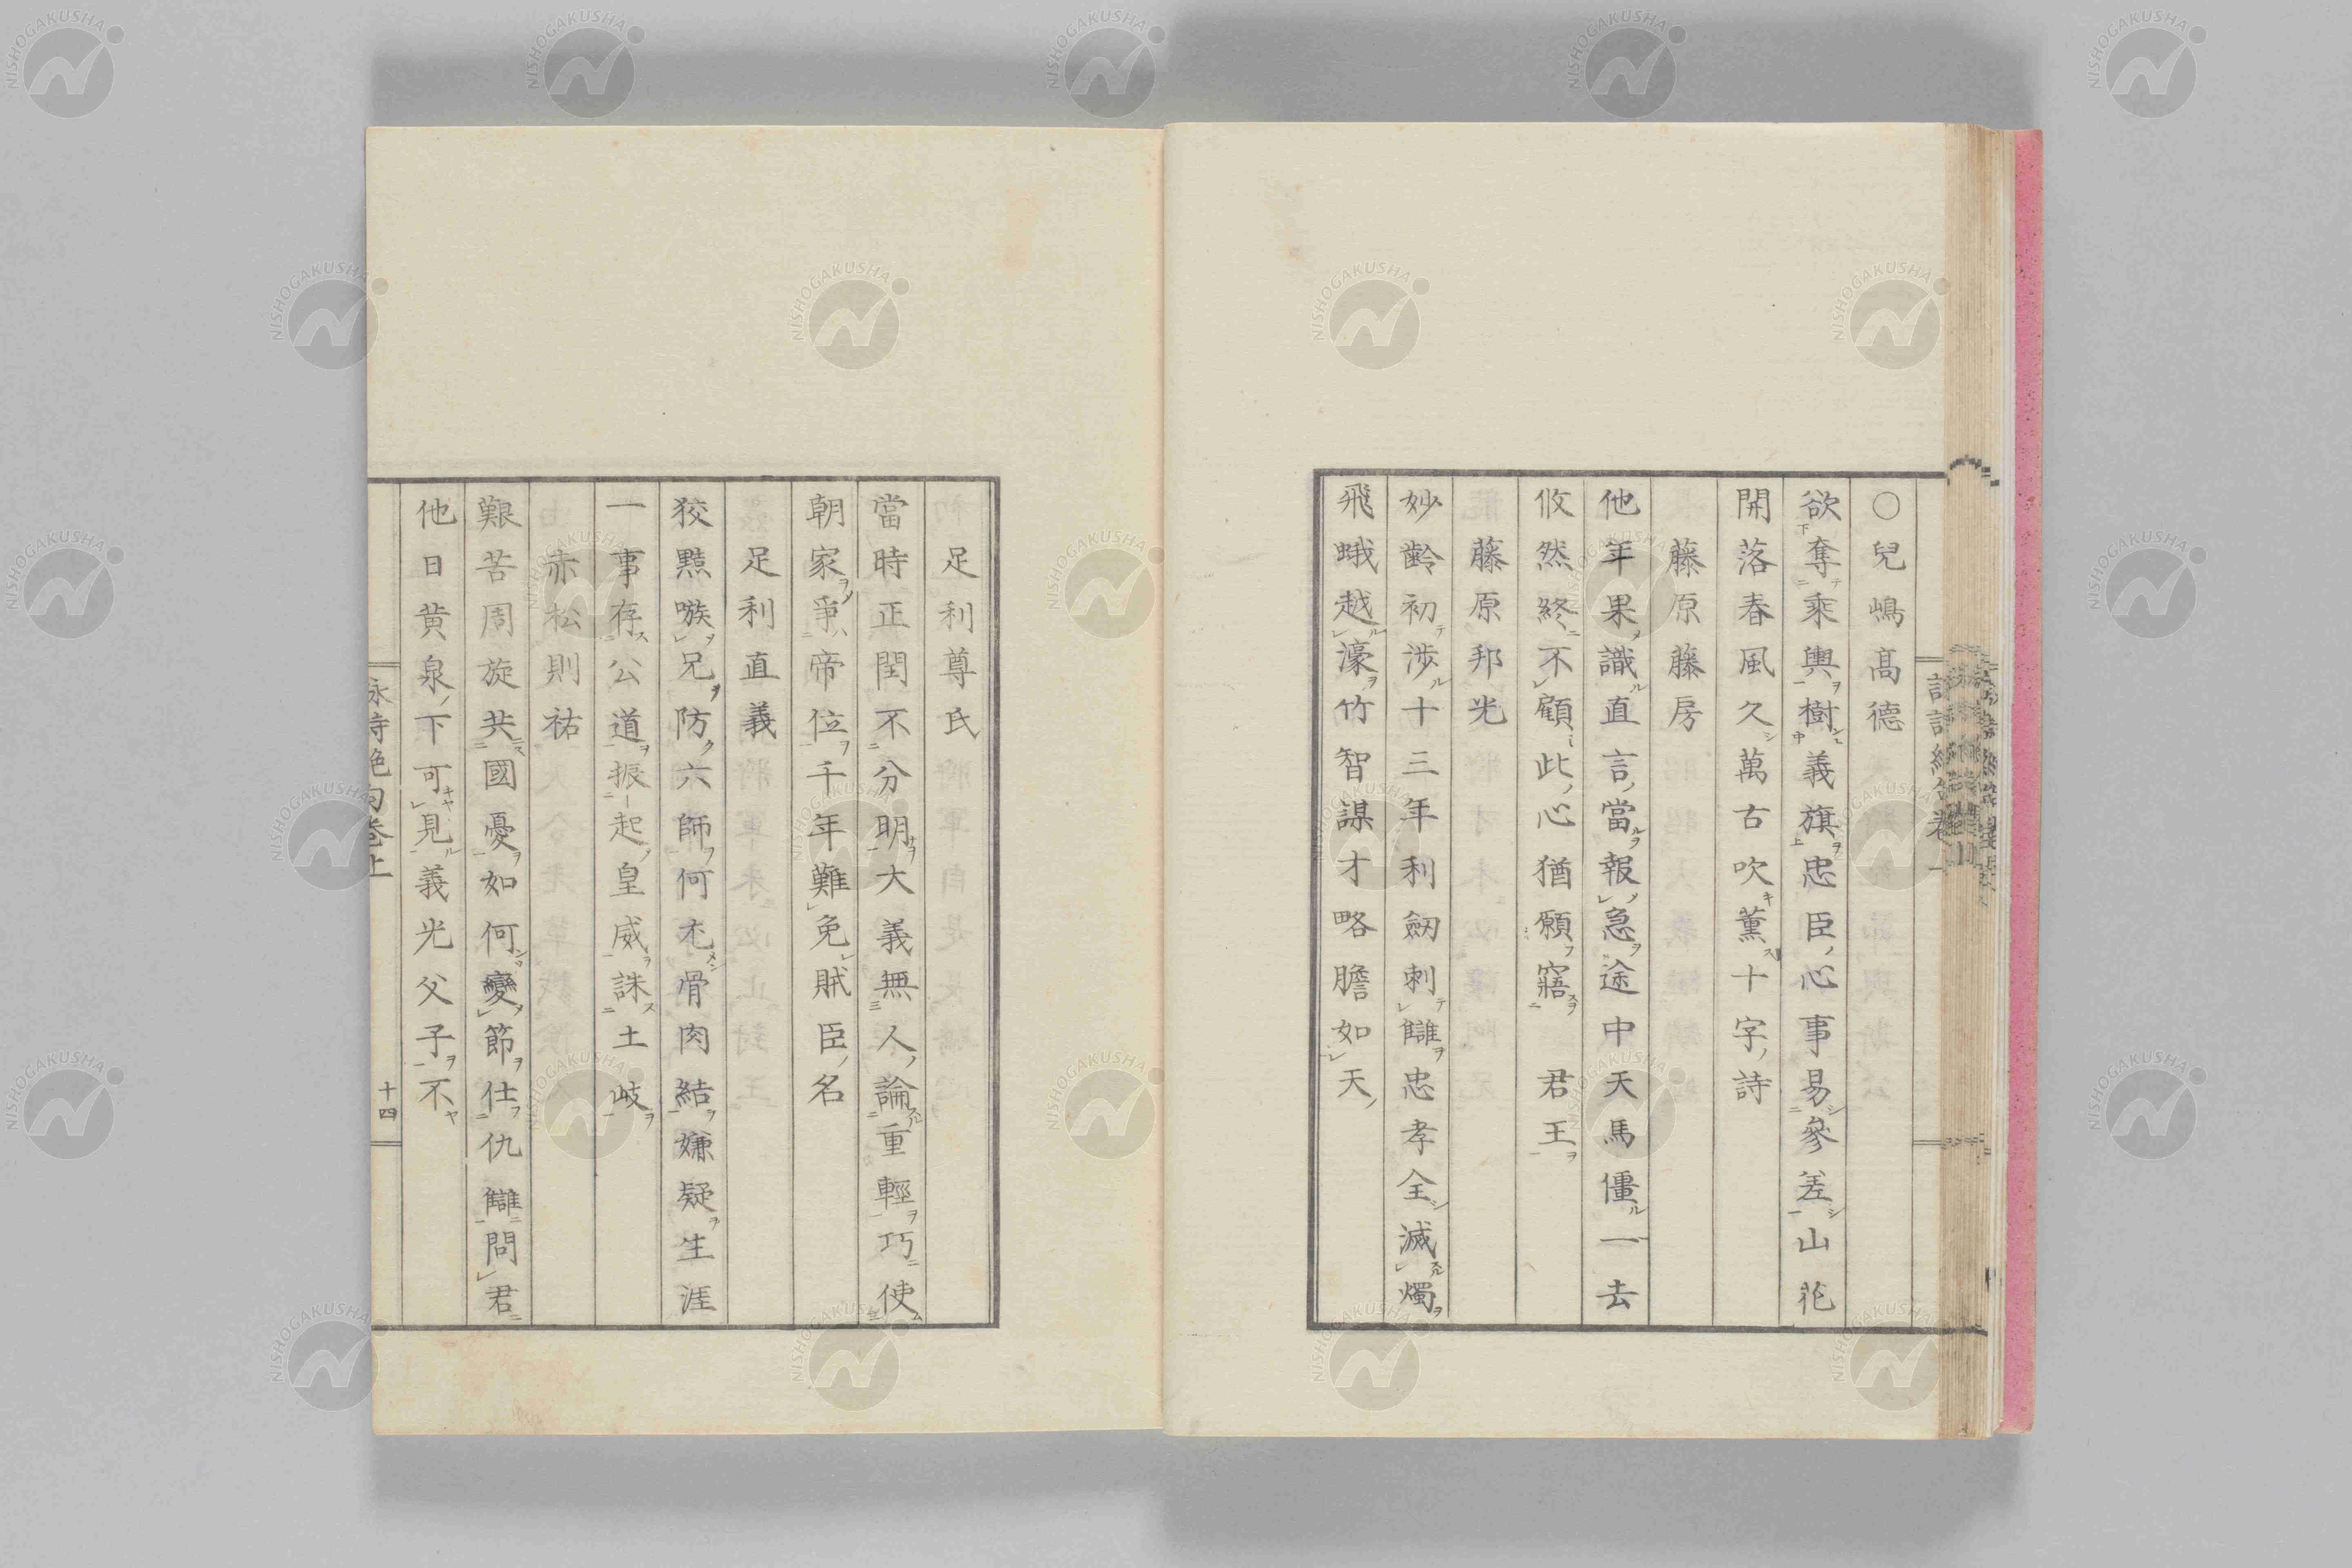 ○兒嶋高德
欲奪乘輿樹義旗忠臣心事易參差山花
開落春風久萬古吹薰十字詩
藤原藤房
他年果識直言當報急途中天馬僵一去
攸然終不顧此心猶願寤君王
藤原邦光
妙齡初涉十三年利劒刺讎忠孝全滅燭
飛蛾越濠竹智謀才略膽如天
足利尊氏
當時正閏不分明大義無人論重輕巧使
朝家爭帝位千年難免賊臣名
足利直義
狡黠嗾兄防六師何尤骨肉結嫌疑生涯
一事存公道振起皇威誅土岐
赤松則祐
艱苦周旋共國憂如何變節仕仇讎問君
他日黄泉下可見義光父子不
詠詩絶句卷上
十四